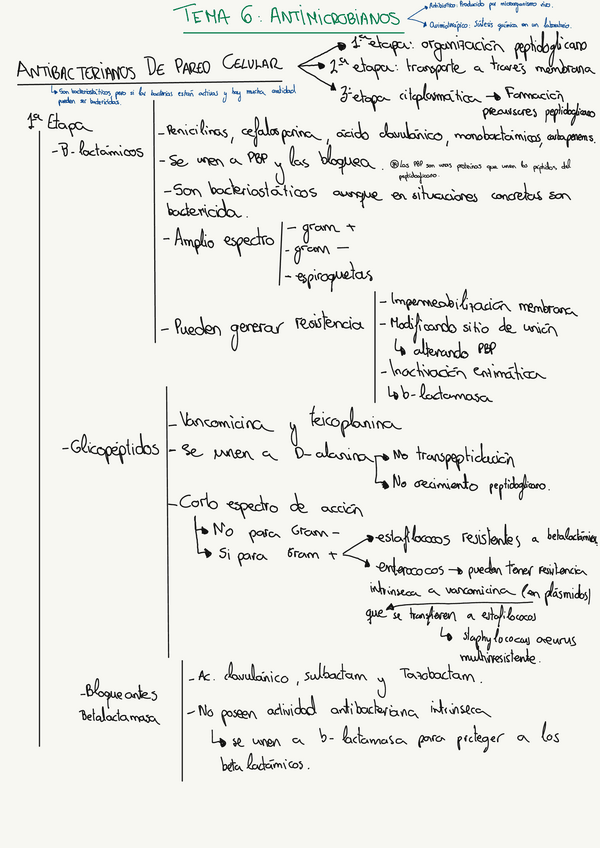 TEMA 6: ANTIMICROBIANOS
Antibiótico: Producido por microorganismo vivo.
Quimioterápico: Síntesis química en un laboratorio.
ANTIBACTERIANOS DE PARED CELULAR
1ª etapa: organización peptidoglicano
2ª etapa: transporte a través membrana
3ª etapa citoplasmática → Formación
precursores peptidoglicano
↳ Son bacteriostáticos pero si las bacterias están activas y hay mucha cantidad
pueden ser bactericidas.
1ª Etapa
-B-lactámicos
-Penicilinas, cefalosporina, ácido clavulánico, monobactámicos, carbapenems.
-Se unen a PBP y las bloquea.
Las PBP son unas proteínas que unen los péptidos del
peptidoglicano.
-Son bacteriostáticos aunque en situaciones concretas son
bactericida.
-Amplio espectro
-gram +
-gram -
-espiroquetas
-Pueden generar resistencia
-Impermeabilización membrana
-Modificando sitio de unión
↳ alterando PBP
-Inactivación enzimática
↳ b-lactamasa
-Glicopéptidos
-Vancomicina y teicoplanina
-Se unen a D-alanina
No transpeptidación
No crecimiento peptidoglicano.
-Corto espectro de acción
No para Gram -
Si para Gram +
estafilococos resistentes a betalactámicos
enterococos → pueden tener resistencia
intrínseca a vancomicina (en plásmidos)
que se transfieren a estafilococos
↳ staphylococcus aureus
multirresistente.
-Bloqueantes
Betalactamasa
-Ac. clavulánico, sulbactam y Tazobactam.
-No poseen actividad antibacteriana intrínseca
↳ se unen a b-lactamasa para proteger a los
beta lactámicos.